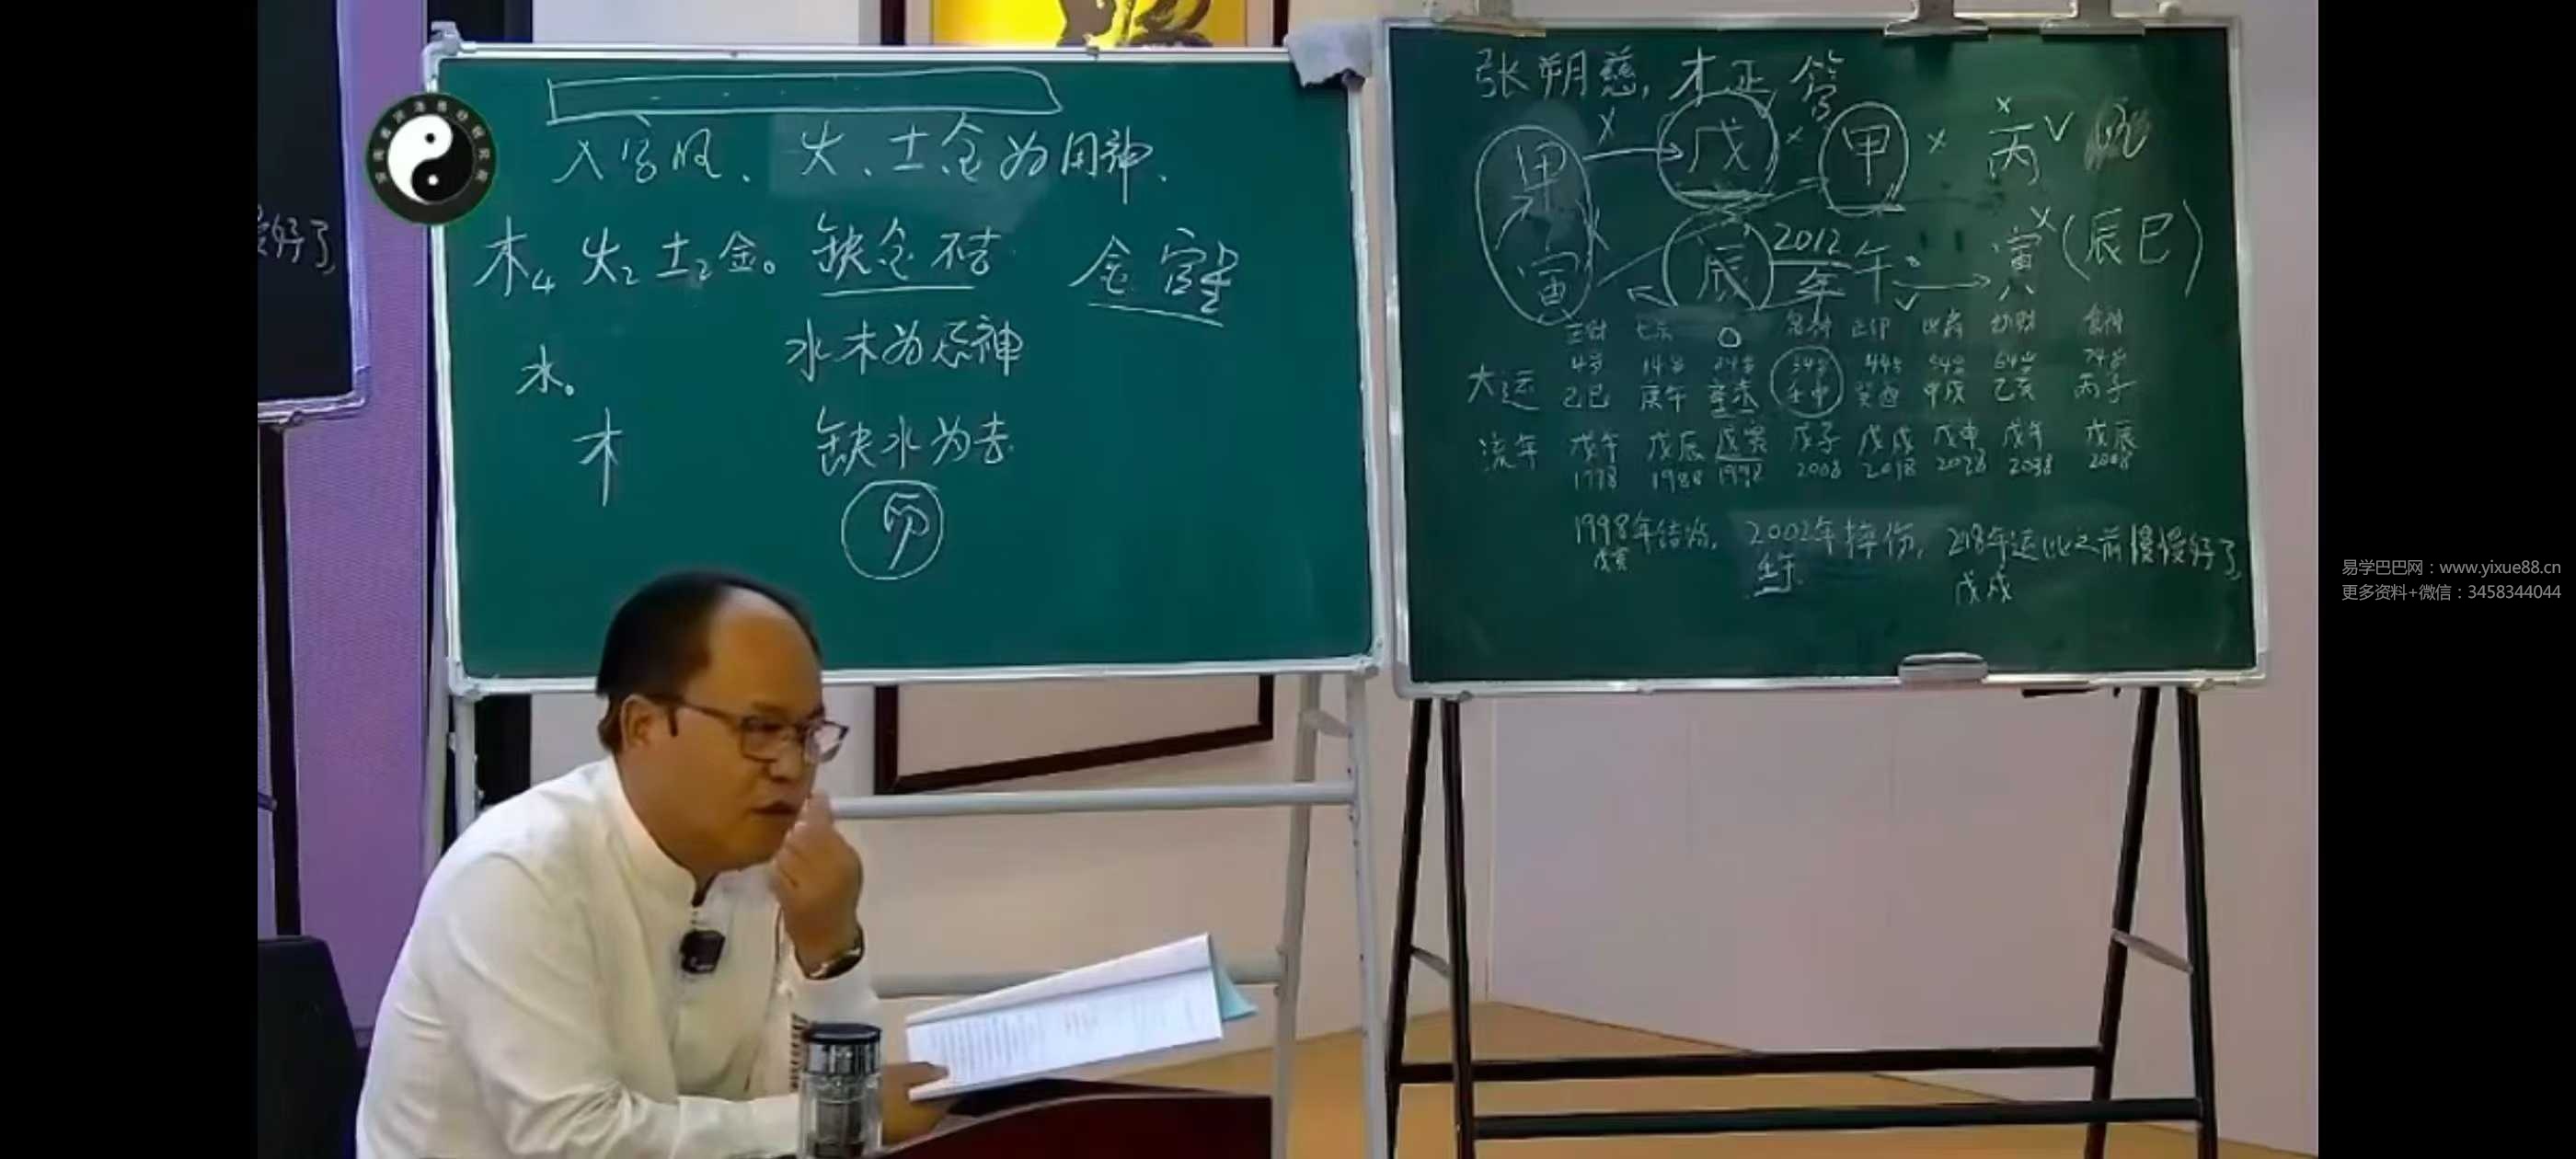 入官风、火、土金为用神.
木4 火2 土2 金0 缺金不吉 金 官
水0 水木为忌神
木 缺水为吉
慢好了
张朔慈,
甲 戊 甲 丙
寅 辰 2012年 午 寅 (辰巳)
4岁 14岁 24岁 34岁 44岁 54岁 64岁 74岁
大运 己巳 庚午 辛未 壬申 癸酉 甲戌 乙亥 丙子
流年 戊午 戊辰 戊寅 戊子 戊戌 戊申 戊午 戊辰
1978 1988 1998 2008 2018 2028 2038 2048
1998年结婚, 2002年摔伤, 218年运比之前慢慢好了,
戊寅 壬午 戊戌
易学巴巴网：www.yixue88.cn
更多资料+微信：3458344044